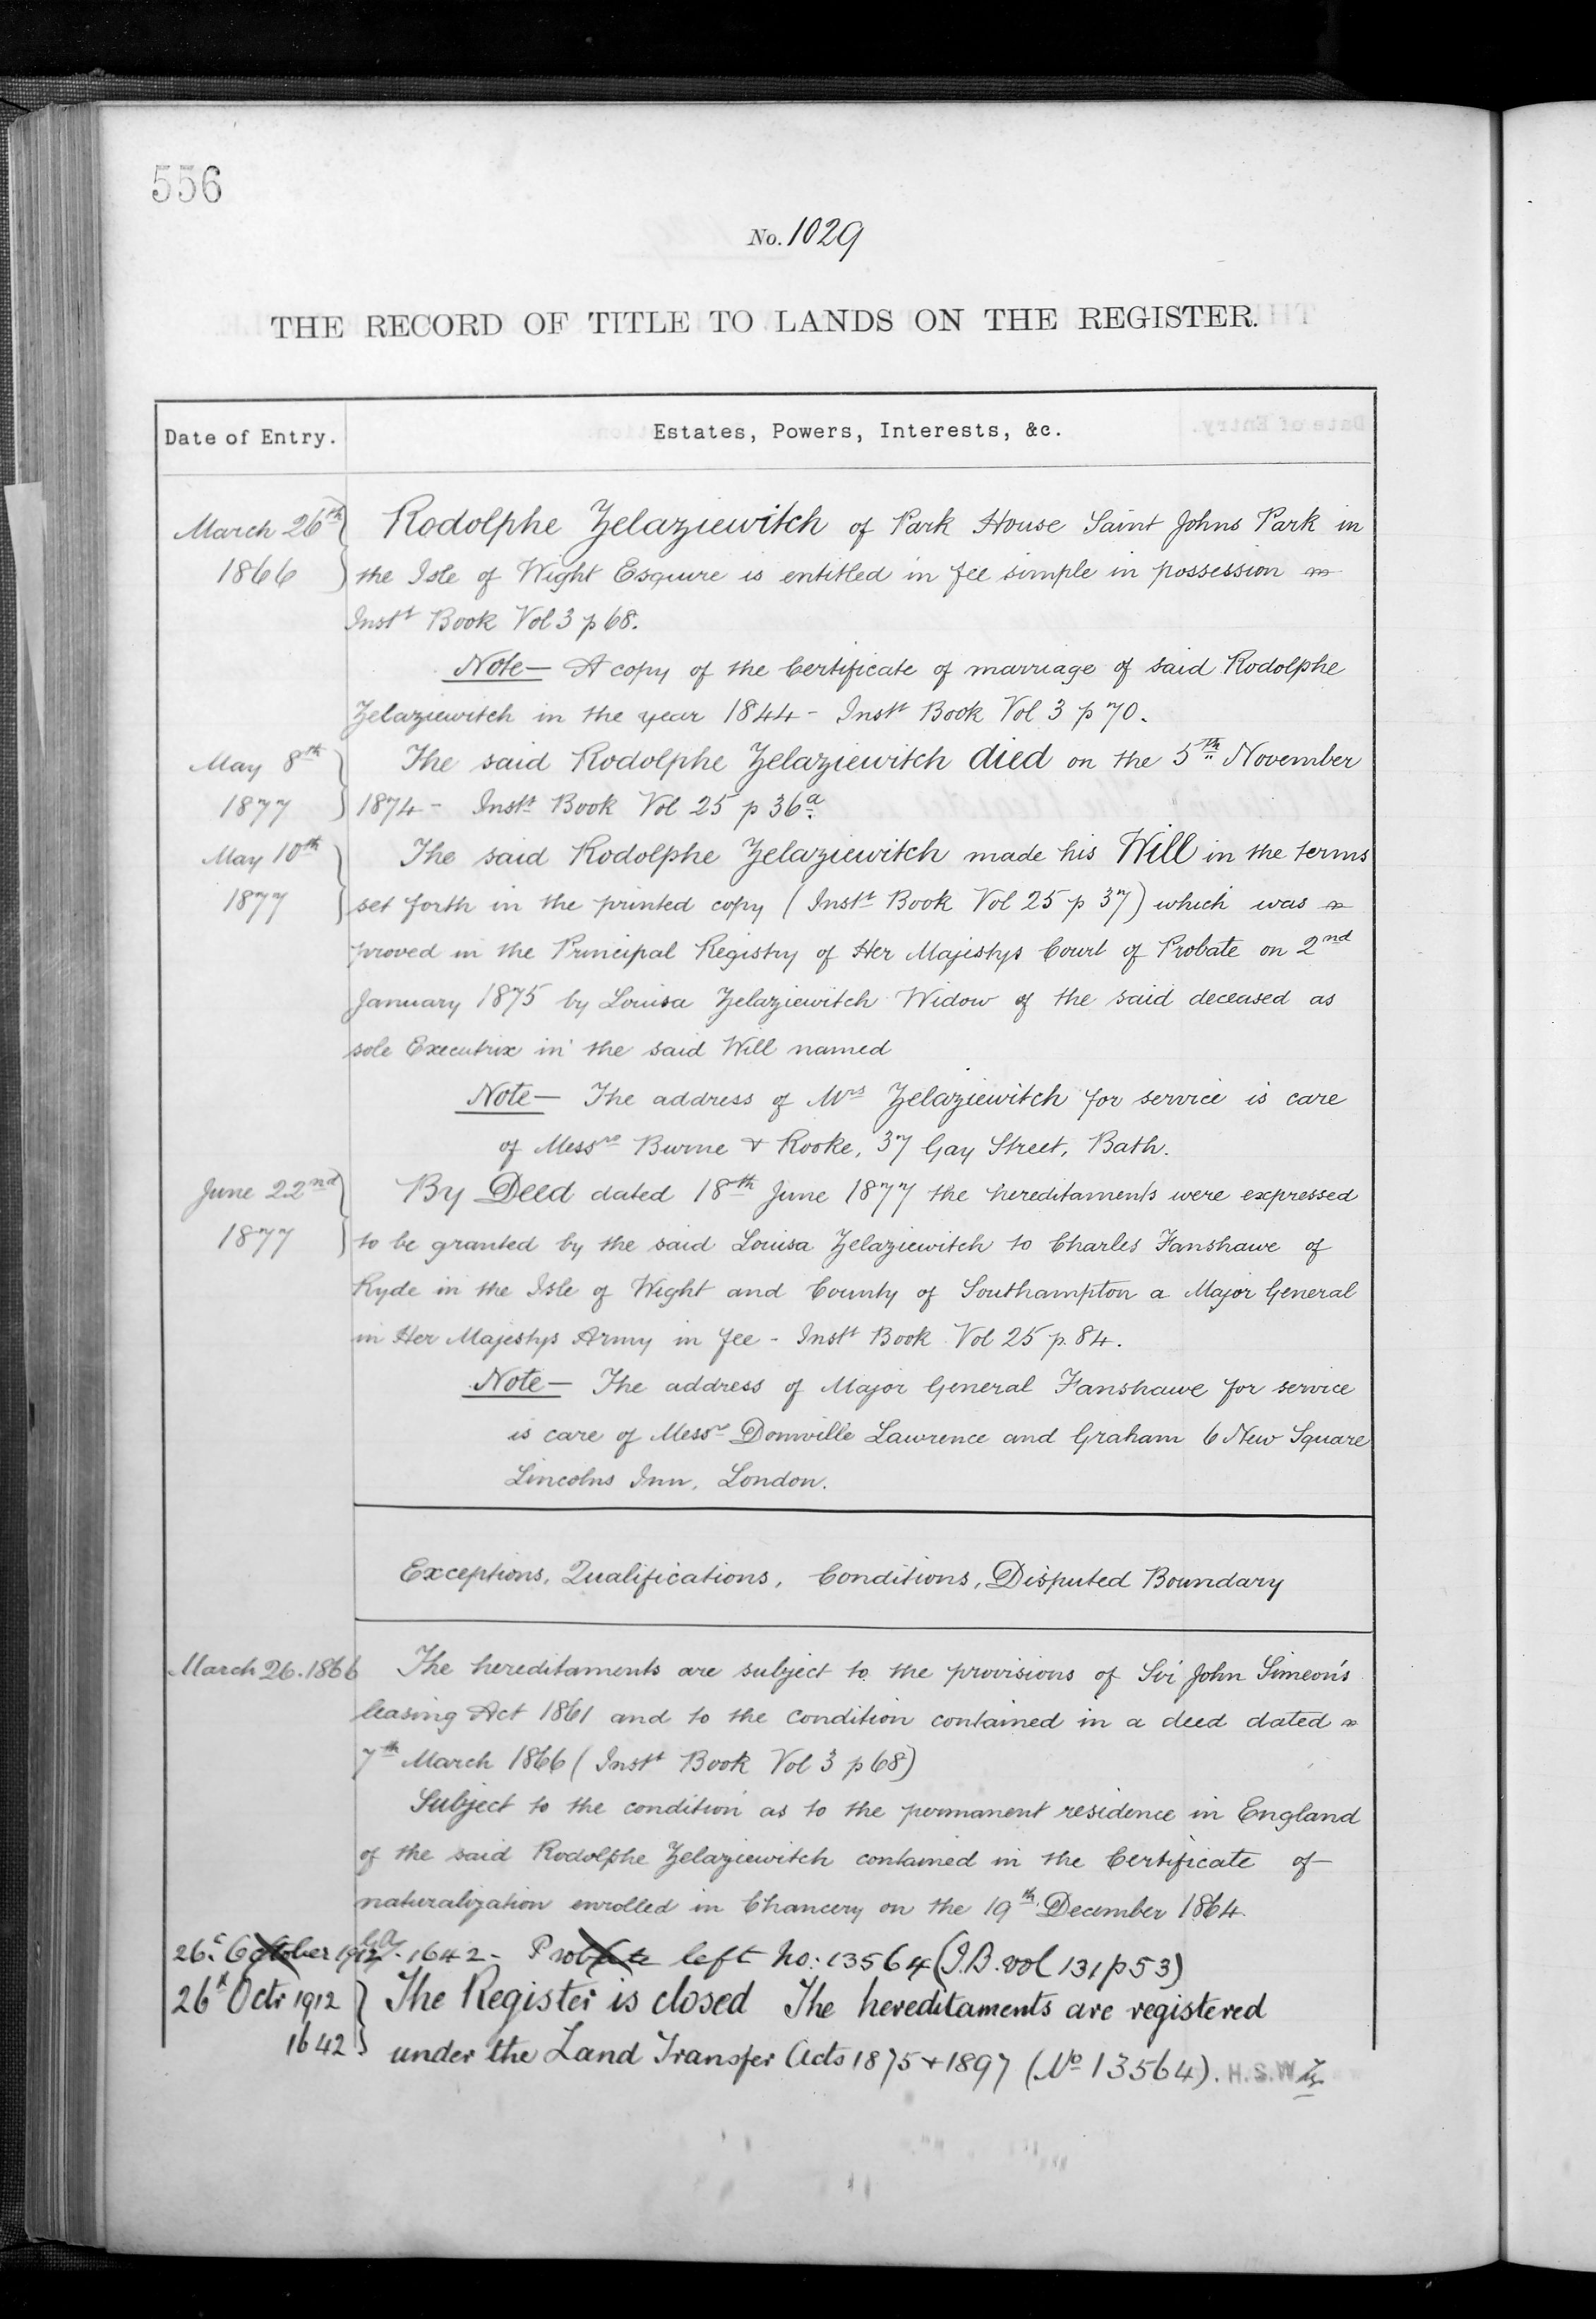 556
No. 1029
THE RECORD OF TITLE TO LANDS ON THE REGISTER.
Date of Entry.
Estates, Powers, Interests, &c.
March 26th Rodolphe Zelaziewitch of Park House Saint Johns Park in
1866 the Isle of Wight Esquire is entitled in fee simple in possession
Instt Book Vol 3 p 68.
Note— A copy of the Certificate of marriage of said Rodolphe
Zelaziewitch in the year 1844 - Instt Book Vol 3 p 70.
May 8th The said Rodolphe Zelaziewitch died on the 5th November
1877 1874 - Instt Book Vol 25 p 36a.
May 10th The said Rodolphe Zelaziewitch made his Will in the terms
1877 set forth in the printed copy (Instt Book Vol 25 p 37) which was
proved in the Principal Registry of Her Majestys Court of Probate on 2nd
January 1875 by Louisa Zelaziewitch Widow of the said deceased as
sole Executrix in the said Will named
Note— The address of Mrs Zelaziewitch for service is care
of Messrs Burne & Rooke, 37 Gay Street, Bath.
June 22nd By Deed dated 18th June 1877 the hereditaments were expressed
1877 to be granted by the said Louisa Zelaziewitch to Charles Fanshawe of
Ryde in the Isle of Wight and County of Southampton a Major General
in Her Majestys Army in fee - Instt Book Vol 25 p. 84.
Note— The address of Major General Fanshawe for service
is care of Messrs Domville Lawrence and Graham 6 New Square
Lincolns Inn, London.
Exceptions, Qualifications, Conditions, Disputed Boundary
March 26. 1866 The hereditaments are subject to the provisions of Sir John Simeon's
leasing Act 1861 and to the condition contained in a deed dated
7th March 1866 (Instt Book Vol 3 p 68)
Subject to the condition as to the permanent residence in England
of the said Rodolphe Zelaziewitch contained in the Certificate of
naturalization enrolled in Chancery on the 19th December 1864.
26. October 1912 - 1642 - Probate left No: 13564 (I.B. vol 131 p 53)
26th Octr 1912 The Register is closed The hereditaments are registered
1642 under the Land Transfer Acts 1875 & 1897 (No 13564). H.S.W